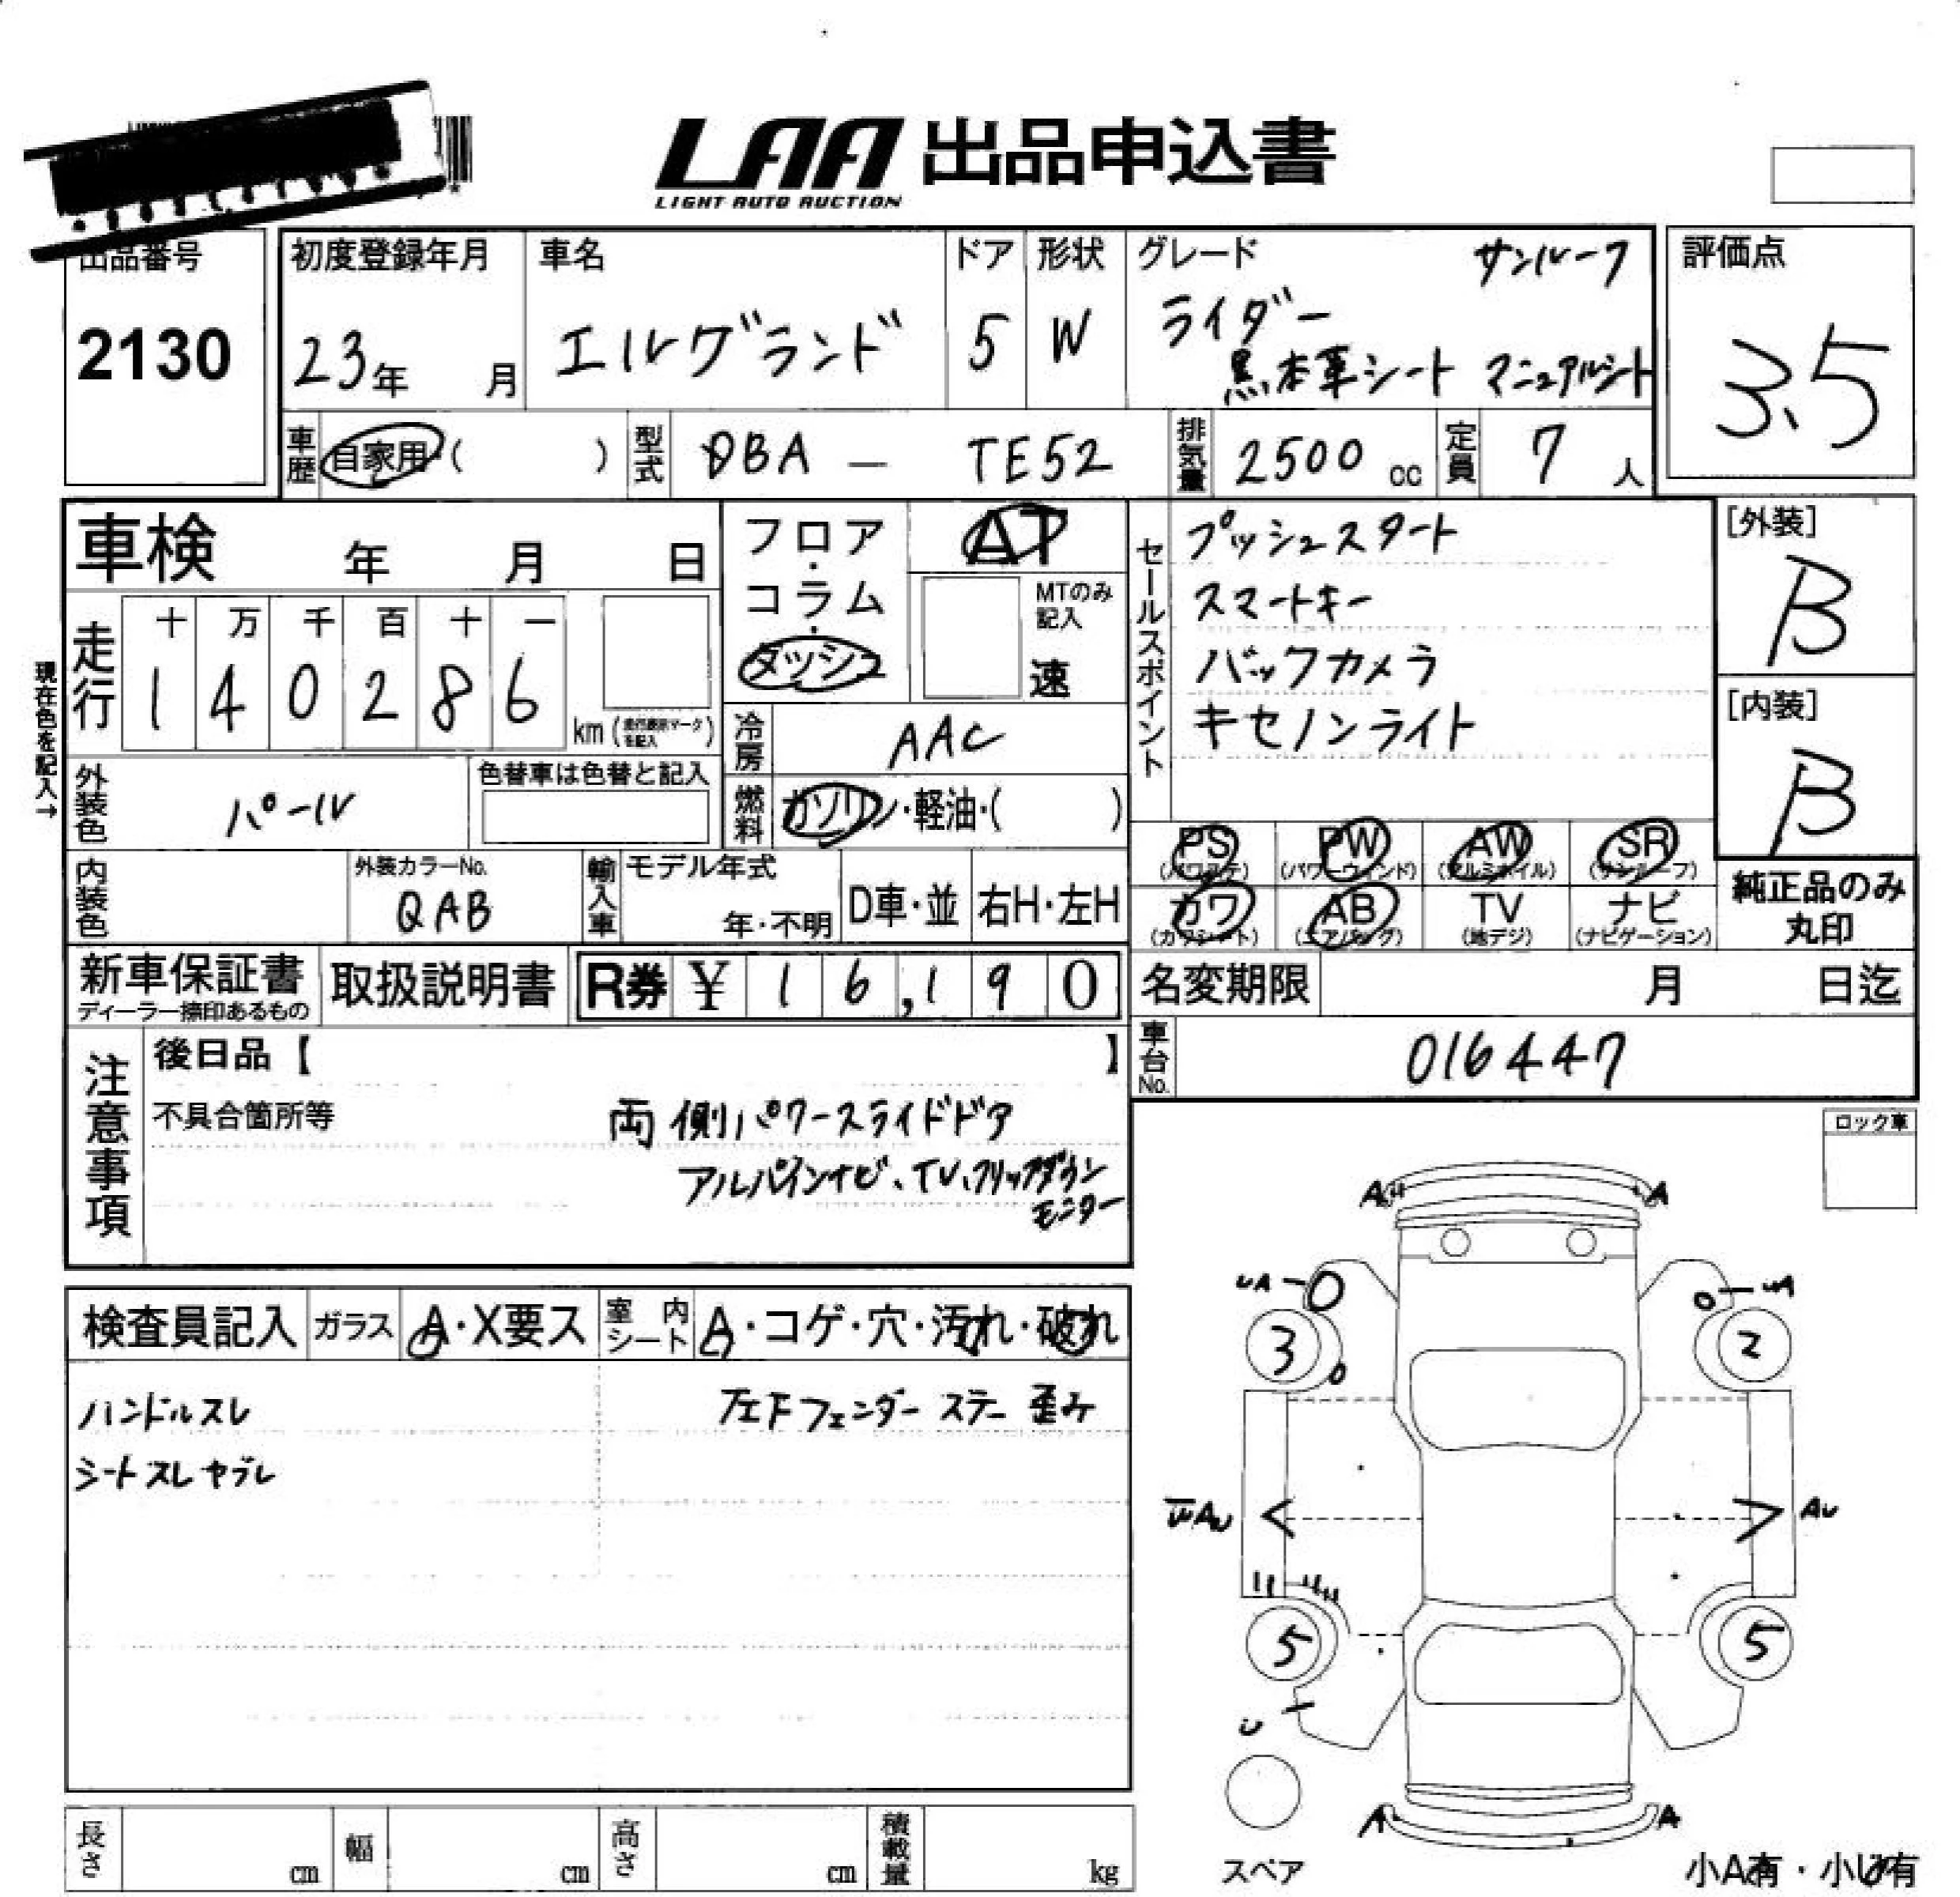 LAA 出品申込書
LIGHT AUTO AUCTION
出品番号
2130
初度登録年月
23年 月
車名
エルグランド
ドア
5
形状
W
グレード サンルーフ
ライダー
黒本革シート マニュアルシート
評価点
3.5
車歴 自家用( )
型式 DBA — TE52
排気量 2500 cc
定員 7 人
車検 年 月 日
フロア・コラム・ダッシュ
AT
MTのみ記入
速
セールスポイント
プッシュスタート
スマートキー
バックカメラ
キセノンライト
[外装]
B
[内装]
B
現在色を記入→
走行
十 万 千 百 十 一
1 4 0 2 8 6 km (走行表示マークを記入)
冷房 AAC
外装色 パール
色替車は色替と記入
燃料 ガソリン・軽油・( )
PS (パワステ) PW (パワーウィンド) AW (アルミホイル) SR (サンルーフ)
カワ (カワシート) AB (エアバッグ) TV (地デジ) ナビ (ナビゲーション)
純正品のみ丸印
内装色
外装カラーNo.
QAB
輸入車 モデル年式
年・不明
D車・並 右H・左H
新車保証書
ディーラー捺印あるもの
取扱説明書
R券 ¥ 1 6,1 9 0
名変期限 月 日迄
車台No. 016447
注意事項
後日品【 】
不具合箇所等 両側パワースライドドア
アルパインナビ、TV、フリップダウン
モニター
ロック車
検査員記入 ガラス A・X要ス 室内シート A・コゲ・穴・汚れ・破れ
ハンドルスレ 左Fフェンダー ステー 歪み
シートスレヤブレ
A A
UA UA
3 2
AU
5 5
U
A A
スペア
小A有・小U有
長さ cm 幅 cm 高さ cm 積載量 kg